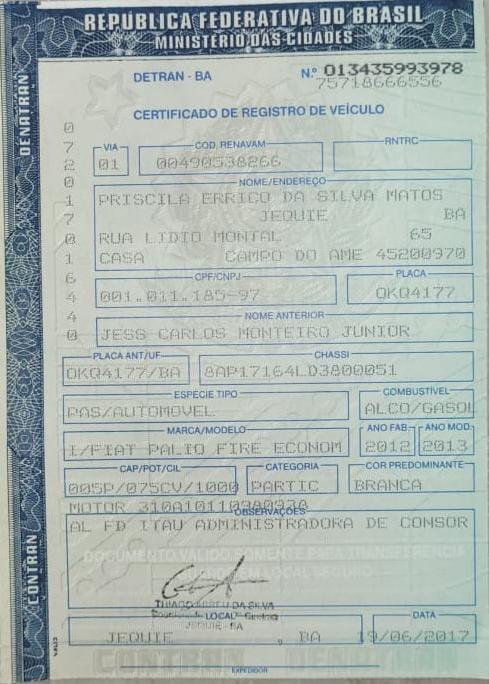 REPUBLICA FEDERATIVA DO BRASIL
MINISTÉRIO DAS CIDADES
DENATRAN
DETRAN - BA
N.º 013435993978
75718666556
CERTIFICADO DE REGISTRO DE VEÍCULO
072017016440
VIA
01
COD. RENAVAM
00490538266
RNTRC
NOME/ENDEREÇO
PRISCILA ERRICO DA SILVA MATOS
JEQUIE BA
RUA LIDIO MONTAL 65
CASA CAMPO DO AME 45200970
CPF/CNPJ
001.011.185-97
PLACA
OKQ4177
NOME ANTERIOR
JESS CARLOS MONTEIRO JUNIOR
PLACA ANT/UF
OKQ4177/BA
CHASSI
8AP17164LD3800051
ESPÉCIE TIPO
PAS/AUTOMOVEL
COMBUSTÍVEL
ALCO/GASOL
MARCA/MODELO
I/FIAT PALIO FIRE ECONOM
ANO FAB.
2012
ANO MOD.
2013
CAP/POT/CIL
005P/075CV/1000
CATEGORIA
PARTIC
COR PREDOMINANTE
BRANCA
MOTOR
OBSERVAÇÕES
AL FD ITAU ADMINISTRADORA DE CONSOR
DOCUMENTO VÁLIDO SOMENTE PARA TRANSFERÊNCIA
THIAGO ABREU DA SILVA
LOCAL
JEQUIÉ - BA
JEQUIE , BA
DATA
19/06/2017
CONTRAN
CONTRAN DENATRAN
EXPEDIDOR